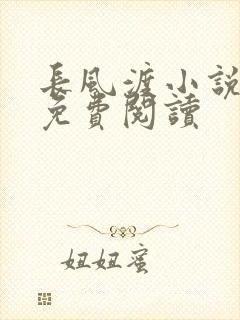 長風渡小說
免費閱讀
妞妞蜜